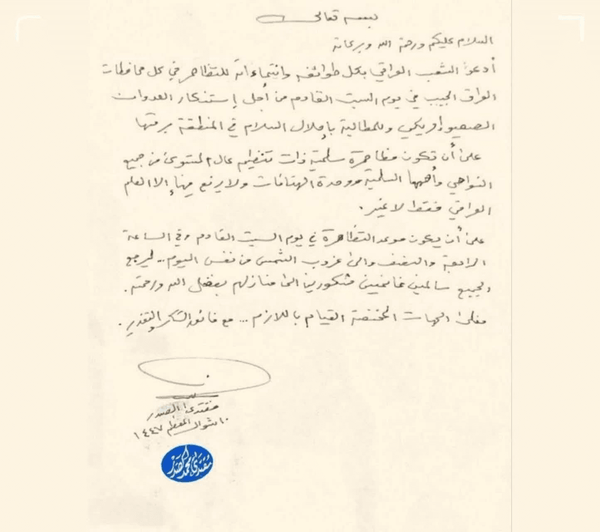 بسمه تعالى
السلام عليكم ورحمة الله وبركاته
أدعوا الشعب العراقي بكل طوائفه وانتماءاته للتظاهر في كل محافظات
العراق الحبيب في يوم السبت القادم من أجل إستنكار العدوان
الصهيوإمريكي وللمطالبة بإحلال السلام في المنطقة برمتها
على أن تكون مظاهرة سلمية ذات تنظيم عالٍ المستوى من جميع
النواحي وأهمها السلمية ووحدة الهتافات ولا يرفع فيها إلا العلم
العراقي فقط لا غير.
على أن يكون موعد التظاهرة في يوم السبت القادم وفي الساعة
الرابعة والنصف والى غروب الشمس من نفس اليوم.. ليرجع
الجميع سالمين غانمين مشكورين الى منازلهم بفضل الله ورحمته.
فعلى الجهات المختصة القيام باللازم... مع فائق الشكر والتقدير.
مقتدى الصدر
١٠ شوال المعظم ١٤٤٧